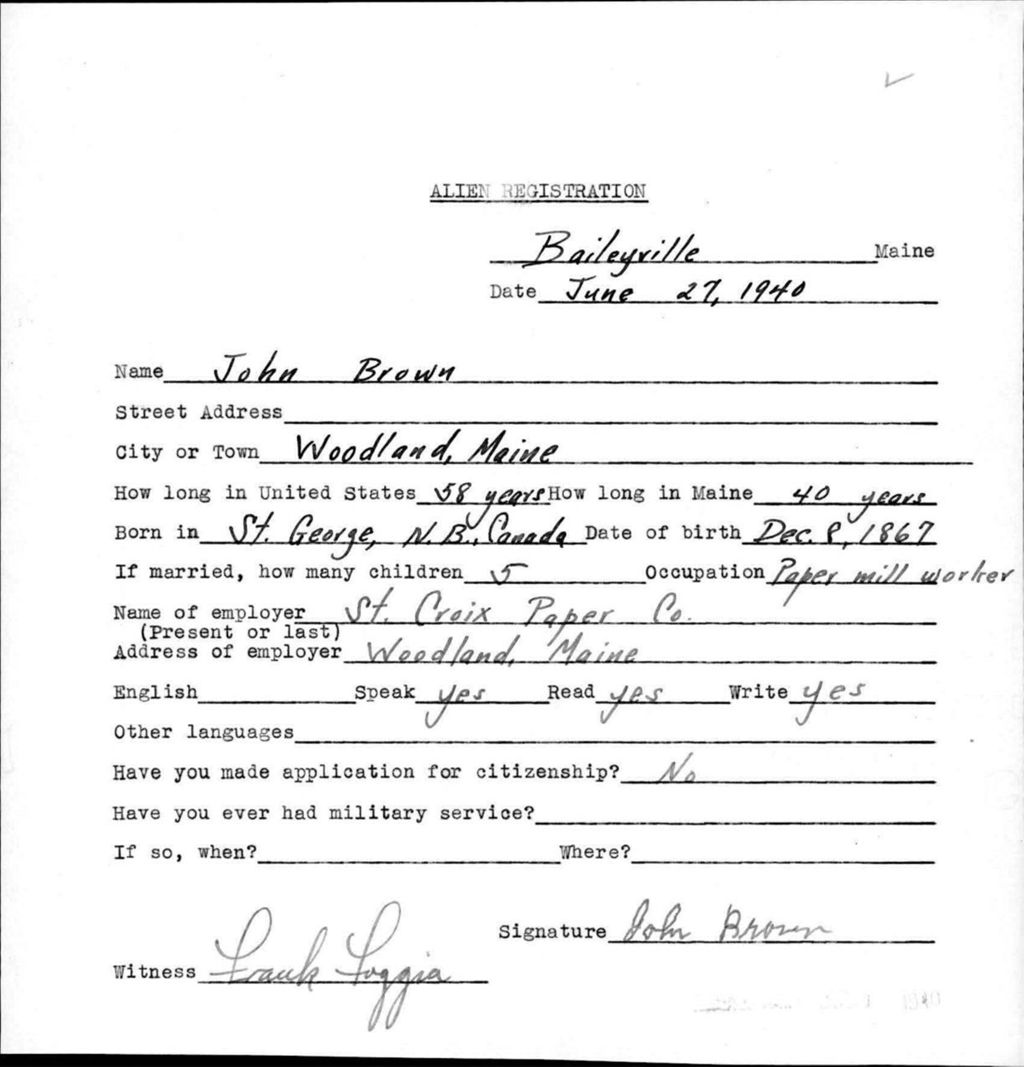 ALIEN REGISTRATION
Baileyville Maine
Date June 27, 1940
Name John Brown
Street Address
City or Town Woodland, Maine
How long in United States 58 years How long in Maine 40 years
Born in St. George, N.B., Canada Date of birth Dec. 8, 1867
If married, how many children 5 Occupation Paper mill worker
Name of employer St. Croix Paper Co.
(Present or last)
Address of employer Woodland, Maine
English Speak yes Read yes Write yes
Other languages
Have you made application for citizenship? No
Have you ever had military service?
If so, when? Where?
Signature John Brown
Witness Frank Loggia